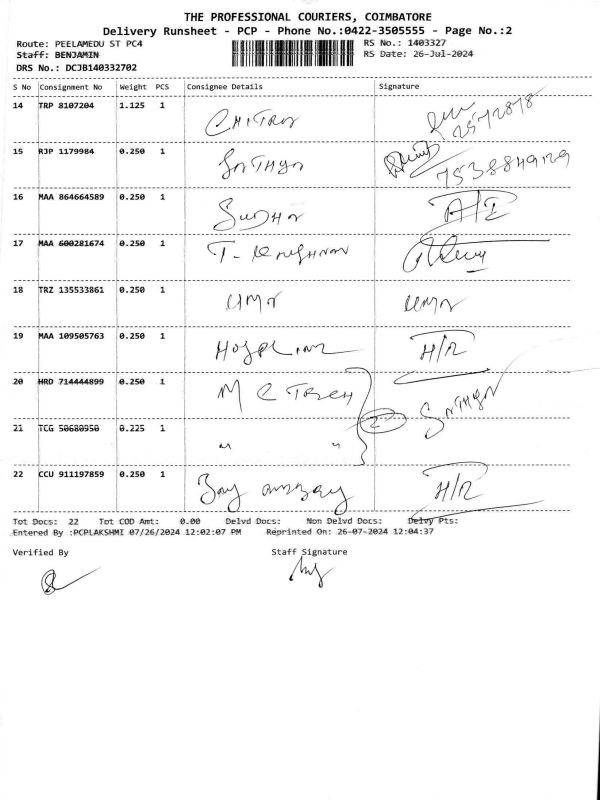 THE PROFESSIONAL COURIERS, COIMBATORE
Delivery Runsheet - PCP - Phone No.:0422-3505555 - Page No.:2
Route: PEELAMEDU ST PC4 RS No.: 1403327
Staff: BENJAMIN RS Date: 26-Jul-2024
DRS No.: DCJB140332702
S No Consignment No Weight PCS Consignee Details Signature
14 TRP 8107204 1.125 1 CHITRA
15 RJP 1179984 0.250 1 SATHYA 7538849129
16 MAA 864664589 0.250 1 SUDHA
17 MAA 600281674 0.250 1
18 TRZ 135533861 0.250 1 UMA UMA
19 MAA 109505763 0.250 1 H/R
20 HRD 714444899 0.250 1 M C TECH SATHYA
21 TCG 50680950 0.225 1 " " 2
22 CCU 911197859 0.250 1 H/R
Tot Docs: 22 Tot COD Amt: 0.00 Delvd Docs: Non Delvd Docs: Delvy Pts:
Entered By :PCPLAKSHMI 07/26/2024 12:02:07 PM Reprinted On: 26-07-2024 12:04:37
Verified By Staff Signature